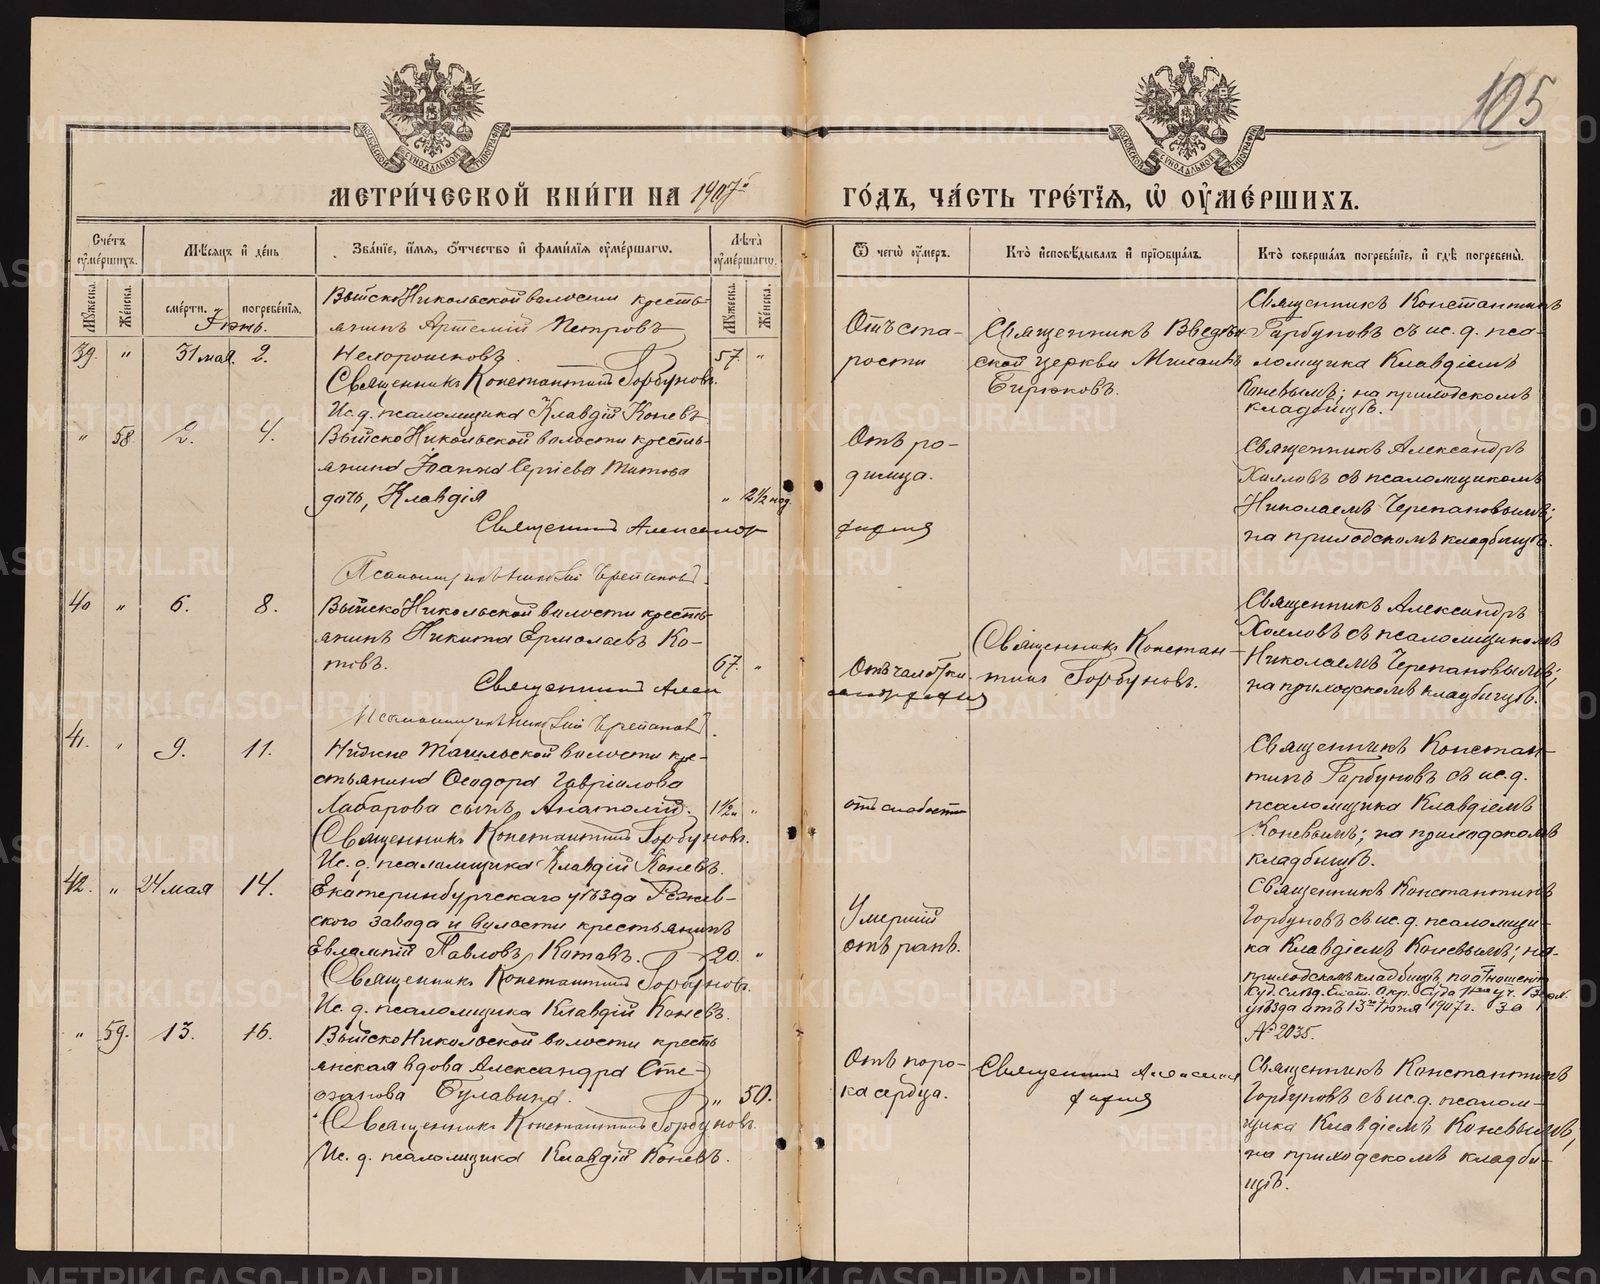 105
МЕТРИ́ЧЕСКОЙ КНИ́ГИ НА 1907й
ГО́ДЪ, ЧА́СТЬ ТРЕ́ТЇЯ, Ѡ҆ ОУ҆МЕ́РШИХЪ.
Сче́тъ оу҆ме́ршихъ.
Мѣ́сяцъ и҆ де́нь
Зва́нїе, и҆́мя, ѻ҆́тчество и҆ фами́лїя оу҆ме́ршагѡ.
Лѣ́та оу҆ме́ршагѡ.
Ѿ чегѡ̀ оу҆́меръ.
Кто̀ и҆сповѣ́дывалъ и҆ прїѡбща́лъ.
Кто̀ соверша́лъ погребе́нїе, и҆ гдѣ̀ погребены̀.
Мꙋ́жеска. Же́нска. сме́рти. погребе́нїя. Мꙋ́жеска. Же́нска.
Іюнь.
39. " 31 мая. 2.
Выйско Никольской волости кресть-
янинъ Артемій Петровъ
Нехорошковъ. 57. "
Священникъ Константинъ Горбуновъ.
Ис. д. псаломщика Клавдій Коневъ
Отъ ста-
рости
Священникъ Введен
ской церкви Михаилъ
Бирюковъ.
Священникъ Константинъ
Горбуновъ съ ис. д. пса-
ломщика Клавдіемъ
Коневымъ; на приходскомъ
кладбищѣ.
" 58 2. 4.
Выйско Никольской волости кресть-
янина Іоанна Сергіева Титова
дочь, Клавдія " 2½ нед.
Священник Александр
Псаломщикъ Николай Черепановъ.
Отъ ро-
димца.
Священникъ Александръ
Хохловъ съ псаломщикомъ
Николаемъ Черепановымъ;
на приходскомъ кладбищѣ.
40 " 6. 8.
Выйско Никольской волости кресть-
янинъ Никита Ермолаевъ Ко-
товъ. 67. "
Священник
Псаломщикъ Николай Черепановъ.
Отъ чахотки.
Священникъ Констан-
тинъ Горбуновъ.
Священникъ Александръ
Хохловъ съ псаломщикомъ
Николаемъ Черепановымъ;
на приходскомъ кладбищѣ.
41. " 9. 11.
Нижне Тагильской волости кре-
стьянина Ѳеодора Гавріилова
Хабарова сынъ, Анатолій. 1½ "
Священникъ Константинъ Горбуновъ.
Ис. д. псаломщика Клавдій Коневъ.
отъ слабости
Священникъ Констан-
тинъ Горбуновъ съ ис. д.
псаломщика Клавдіемъ
Коневымъ; на приходскомъ
кладбищѣ.
42. " 24 мая 14.
Екатеринбургскаго уѣзда Режев-
ского завода и волости крестьянинъ
Евлампій Павловъ Котовъ. 20. "
Священникъ Константинъ Горбуновъ.
Ис. д. псаломщика Клавдій Коневъ.
Умершій
отъ ранъ.
Священникъ Константинъ
Горбуновъ съ ис. д. псаломщи-
ка Клавдіемъ Коневымъ; на
приходскомъ кладбищѣ, по отношенію
Суд. Слѣд. Екат. Окр. Суда уч. Верх.
уѣзда отъ 13го Іюня 1907 г. за
№ 2035.
" 59. 13. 16.
Выйско Никольской волости кресть
янская вдова Александра Сте-
фанова Булавина. " 50.
Священникъ Константинъ Горбуновъ.
Ис. д. псаломщика Клавдій Коневъ.
Отъ поро-
ка сердца.
Священник
Священникъ Константинъ
Горбуновъ съ ис. д. псалом-
щика Клавдіемъ Коневымъ,
на приходскомъ кладби-
щѣ.
METRIKI.GASO-URAL.RU